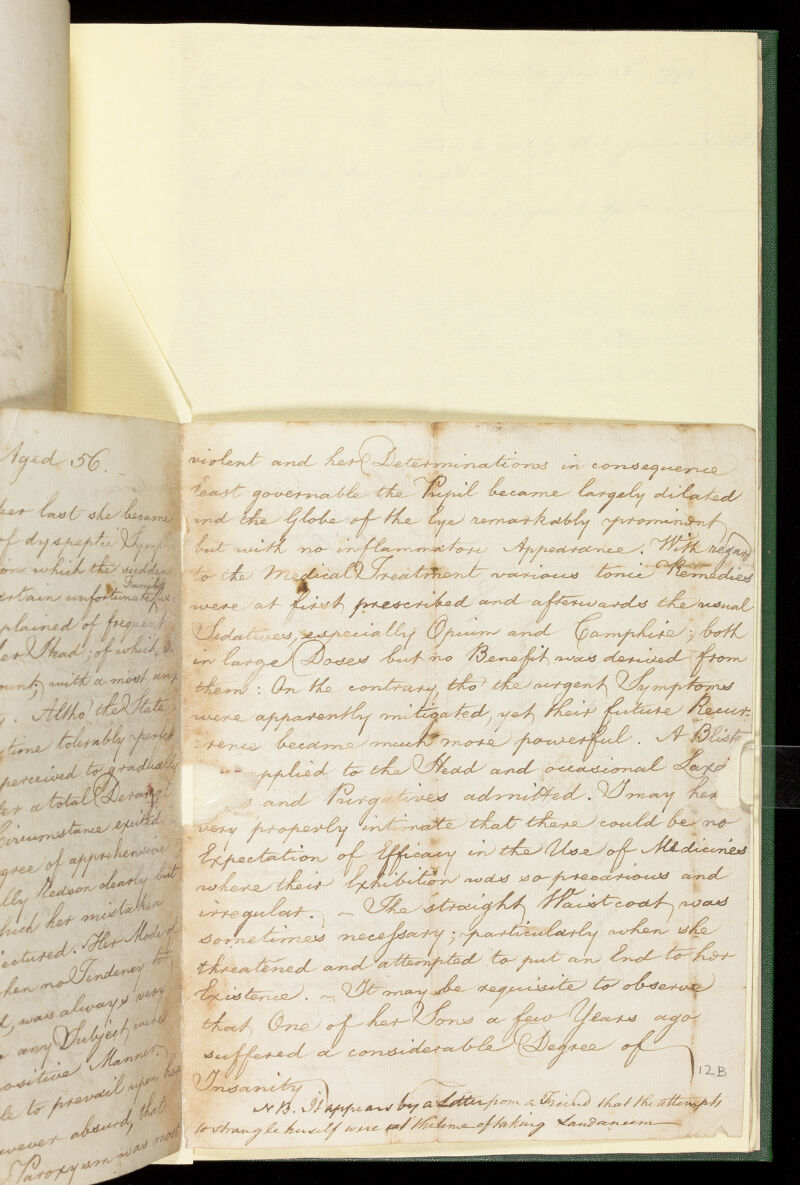 Aged 56.
ber last she became
of dyspeptic Symp
on which the sudden
ertain unfortunate
plained of frequent
er Head; of which
ount; with a most
y. Altho' the State
time tolerably perfect
perceived to gradually
er a total Derang
Circumstance excited
gree of apprehensive
lly Reason clearly but
hich her mistaken
jectured. Her Mode of
hen no Tendency to
t, was always very
any Subject were
ositive Manner.
le to prevail upon her
wever absurd, that
Paroxysm was most
violent and her Determinations in consequence
least governable the Pupil became largely dilated
and the Globe of the Eye remarkably prominent
but with no inflammatory Appearance. With regard
to the Medical Treatment various tonic Remedies
were at first prescribed and afterwards the usual
Sedatives, especially Opium and Camphire; both
in large Doses but no Benefit was derived from
them: On the contrary, tho' the urgent Symptoms
were apparently mitigated, yet their future Recur-
:rence became much more powerful. A Blist
pplied to the Head and occasional Laxa
s and Purgatives admitted. I may here
very properly intimate that there could be no
Expectation of Efficacy in the Use of Medicines
where their Exhibition was so precarious and
irregular. ~ The straight Waistcoat was
sometimes necessary; particularly when she
threatened and attempted to put an End to her
Existence. ~ It may be requisite to observe
that One of her Sons a few Years ago
suffered a considerable Degree of
Insanity
NB. It appears by a Letter from a Friend that the attempts
to strangle herself were at the time of taking Laudanum
12B